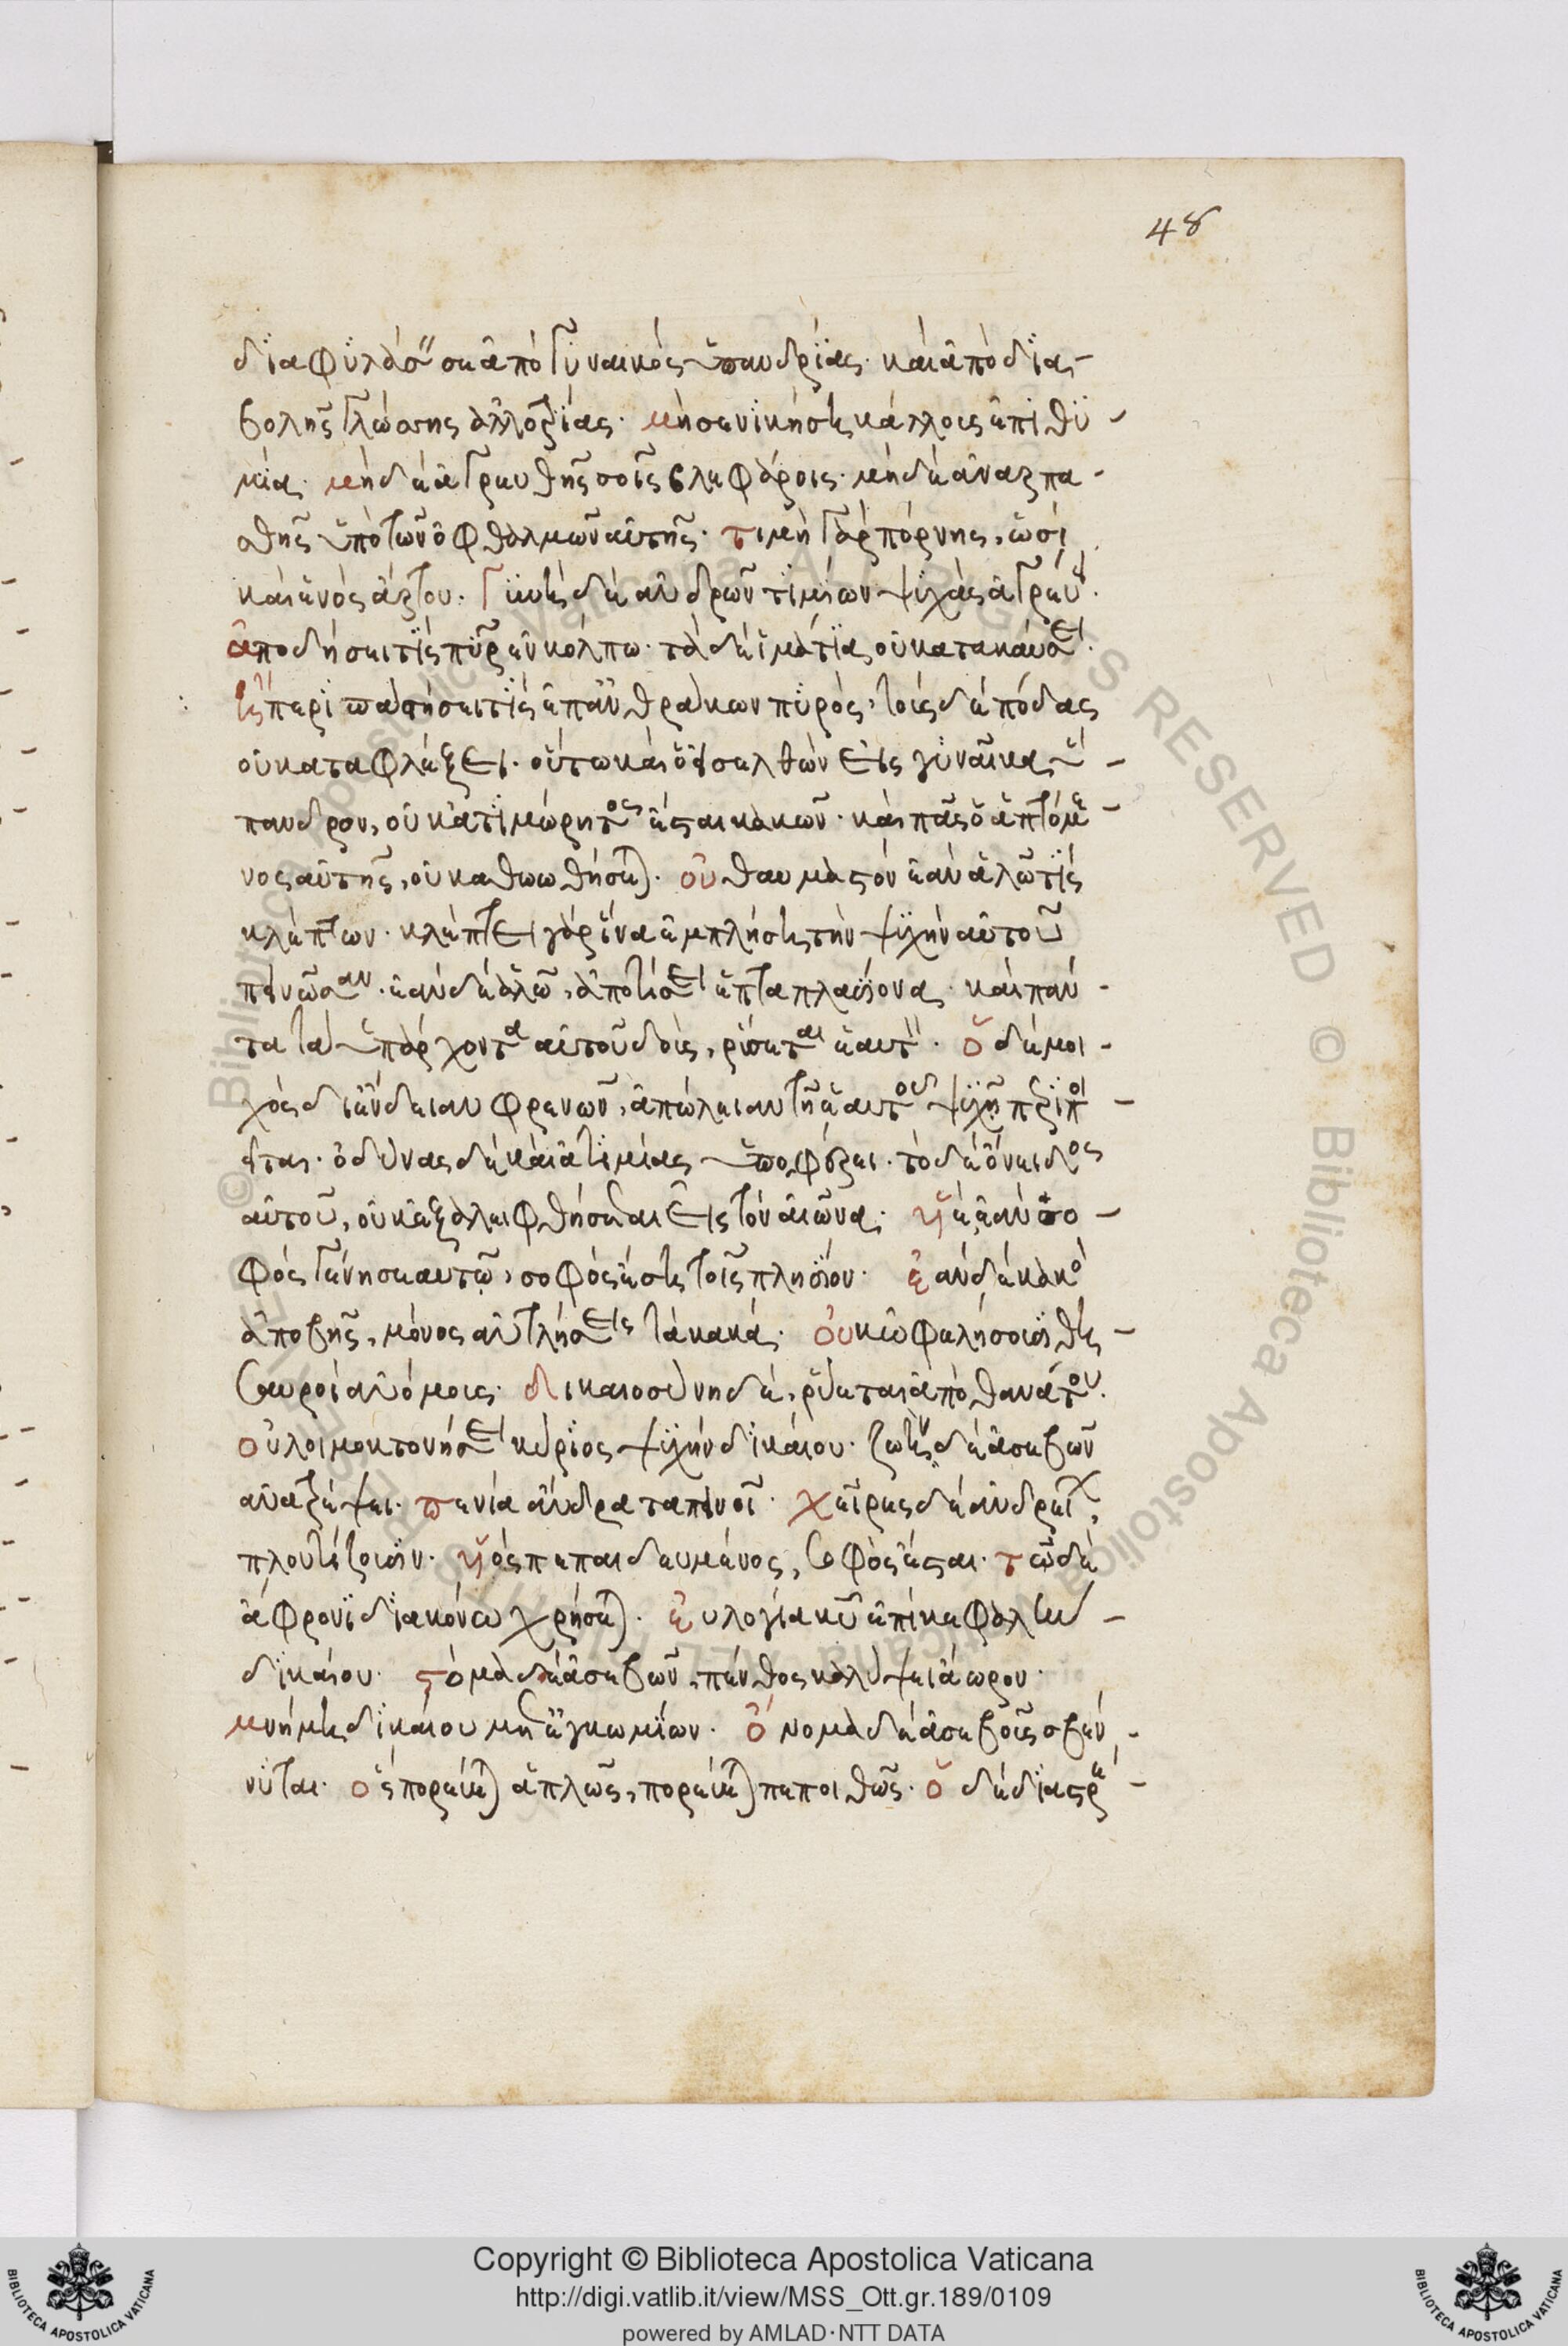 48
διαφυλάσσειν σε ἀπὸ γυναικὸς ὑπανδρίας· καὶ ἀπὸ δια-
βολῆς γλώσσης ἀλλοτρίας· μή σε νικήση κάλλους ἐπιθυ-
μία· μηδὲ ἀγρευθῆς σοῖς βλεφάροις· μηδὲ ἀναρπα-
σθῆς ὑπὸ τῶν ὀφθαλμῶν αὐτῆς· τιμὴ γὰρ πόρνης, ὡσεὶ
καὶ ἑνὸς ἄρτου· γυνὴ δὲ ἀνδρῶν τιμίων ψυχὰς ἀγρεύει·
ἀποδήσει τίς πῦρ ἐν κόλπω· τὰ δὲ ἱμάτια, οὐ κατακαύσει·
ἢ περιπατήσει τίς ἐπ' ἀνθράκων πυρὸς, τοὺς δὲ πόδας
οὐ κατακαφλέξει· οὕτω καὶ ὁ εἰσελθὼν εἰς γυναῖκα ὕ-
πανδρον, οὐκ ἀτιμώρητος ἔσται κακῶν· καὶ πᾶς ὁ ἁπτόμε-
νος αὐτῆς, οὐκ ἀθωωθήσεται· οὐ θαυμαστὸν ἐὰν ἁλῶ τίς
κλέπτων· κλέπτει γὰρ ἵνα ἐμπλήση τὴν ψυχὴν αὐτοῦ
πεινῶσαν· ἐὰν δὲ ἁλῶ, ἀποτίσει ἑπταπλασίονα· καὶ πάν-
τα τὰ ὑπάρχοντα αὐτοῦ δοὺς, ρύσεται ἑαυτ· ὁ δὲ μοι-
χὸς δι' ἔνδειαν φρενῶν, ἀπώλειαν τῆ ἑαυτοῦ ψυχῆ περιποι-
εῖται· ὀδύνας δὲ καὶ ἀτιμίας ὑποφέρει· τὸ δὲ ὄνειδος
αὐτοῦ, οὐκ ἐξαλειφθήσεται εἰς τὸν αἰῶνα· υἱὲ ἐὰν σο-
φὸς γένη σεαυτῶ, σοφὸς ἔση τοῖς πλησίον· ἐὰν δὲ κακὸς
ἀποβῆς, μόνος ἀντλήσεις τὰ κακά· οὐκ ὠφελήσουσι θη-
σαυροὶ ἀνόμους· δικαιοσύνη δὲ, ρύεται ἀπὸ θανάτου·
οὐ λιμοκτονήσει κύριος ψυχὴν δικαίου· ζωὴν δὲ ἀσεβῶν
ἀνατρέψει· πενία ἄνδρα ταπεινοῖ· χεῖρες δὲ ἀνδρείων
πλουτίζουσιν· υἱὸς πεπαιδευμένος, σοφὸς ἔσται· τῶ δὲ
ἄφρονι διακόνω χρήσεται· εὐλογία κυ ἐπὶ κεφαλὴν
δικαίου· στόμα δὲ ἀσεβῶν, πένθος καλύψει ἄωρον·
μνήμη δικαίου μετ' ἐγκωμίων· ὄνομα δὲ ἀσεβοῦς σβέν-
νυται· ὃς πορεύεται ἁπλῶς, πορεύεται πεποιθῶς· ὁ δὲ διαστρέ-
Copyright © Biblioteca Apostolica Vaticana
http://digi.vatlib.it/view/MSS_Ott.gr.189/0109
powered by AMLAD·NTT DATA